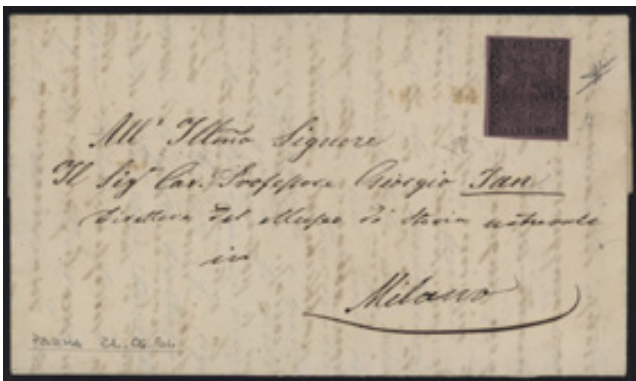 All' Illmo Signore
Il Sigr Cav. Professore Giorgio Jan
Direttore del Museo di Storia naturale
in
Milano
PARMA